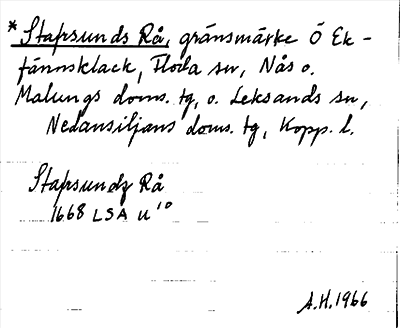 * Stapsunds Rå, gränsmärke Ö Ek-
fännsklack, Floda sn, Nås o.
Malungs doms. tg, o. Leksands sn,
Nedansiljans doms. tg, Kopp. l.
Stapsundz Rå
1668 LSA U 10
A.H. 1966